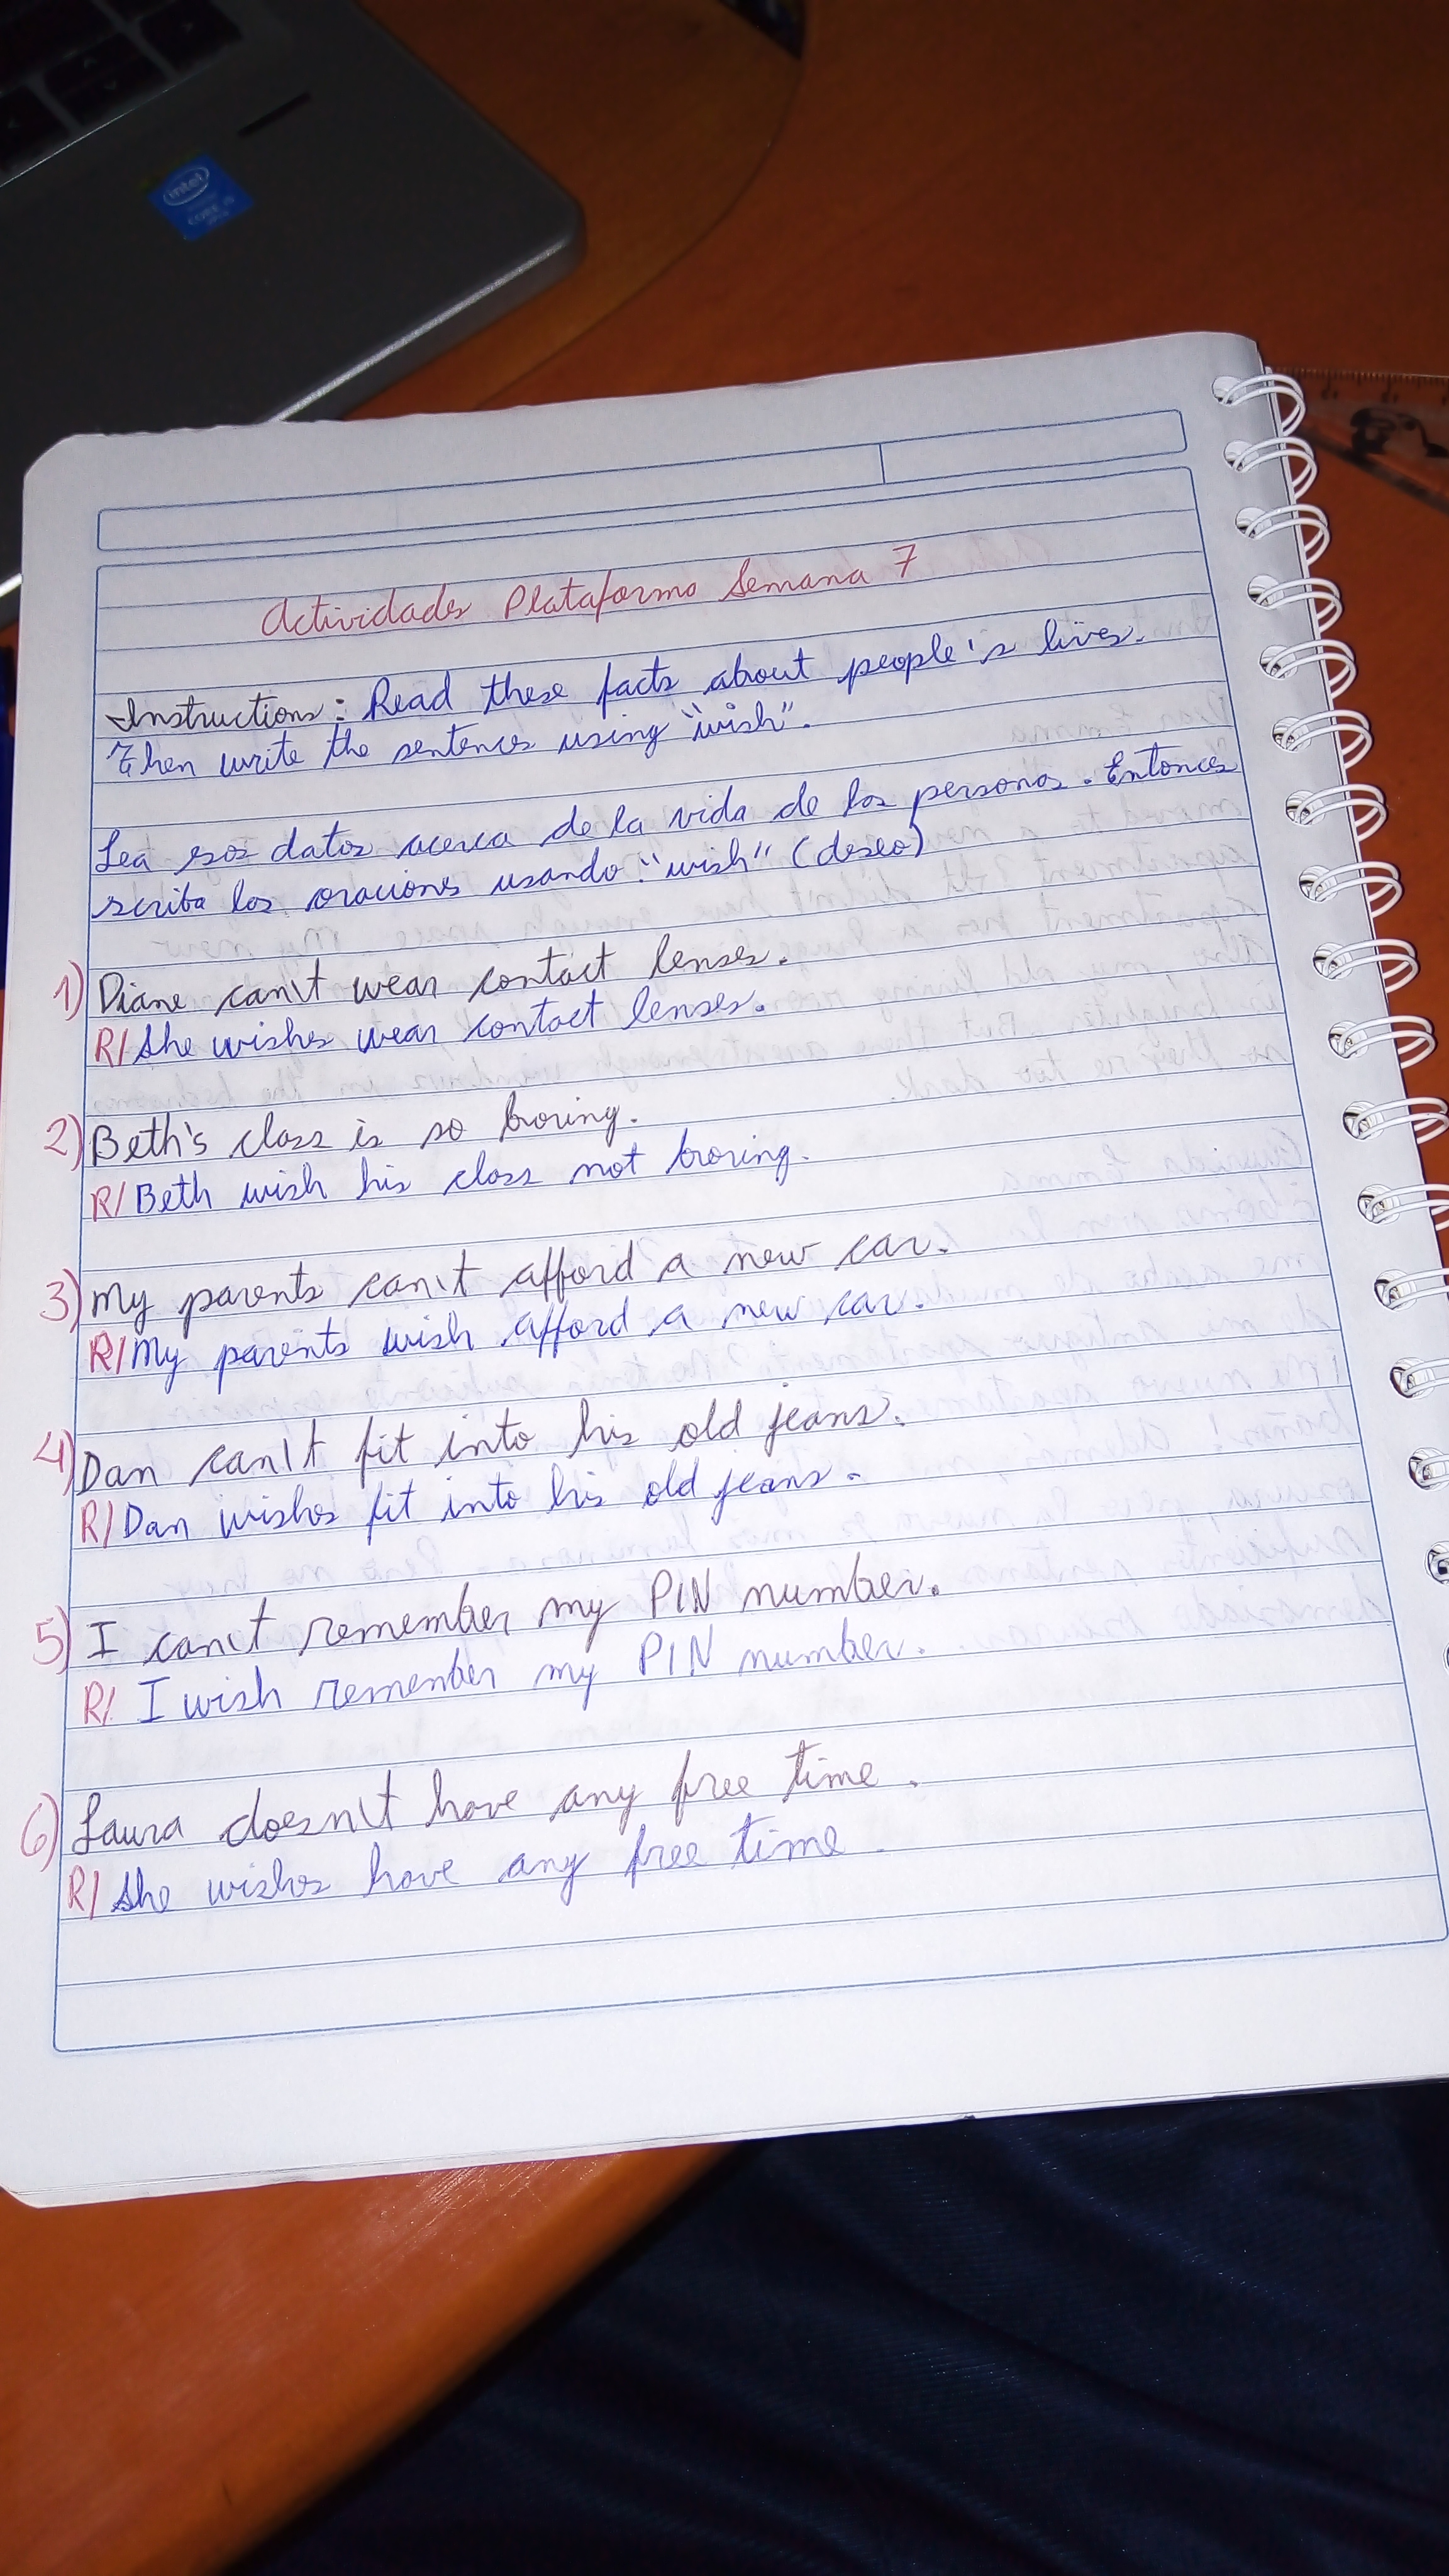 intel
CORE i5
Actividades Plataforma Semana 7
Instructions: Read these facts about people's lives.
Then write the sentences using "wish".
Lea esos datos acerca de la vida de las personas. Entonces
escriba las oraciones usando "wish" (deseo)
1) Diane can't wear contact lenses.
R/ She wishes wear contact lenses.
2) Beth's class is so boring.
R/ Beth wish his class not boring.
3) My parents can't afford a new car.
R/ My parents wish afford a new car.
4) Dan can't fit into his old jeans.
R/ Dan wishes fit into his old jeans.
5) I can't remember my PIN number.
R/ I wish remember my PIN number.
6) Laura doesn't have any free time.
R/ She wishes have any free time.